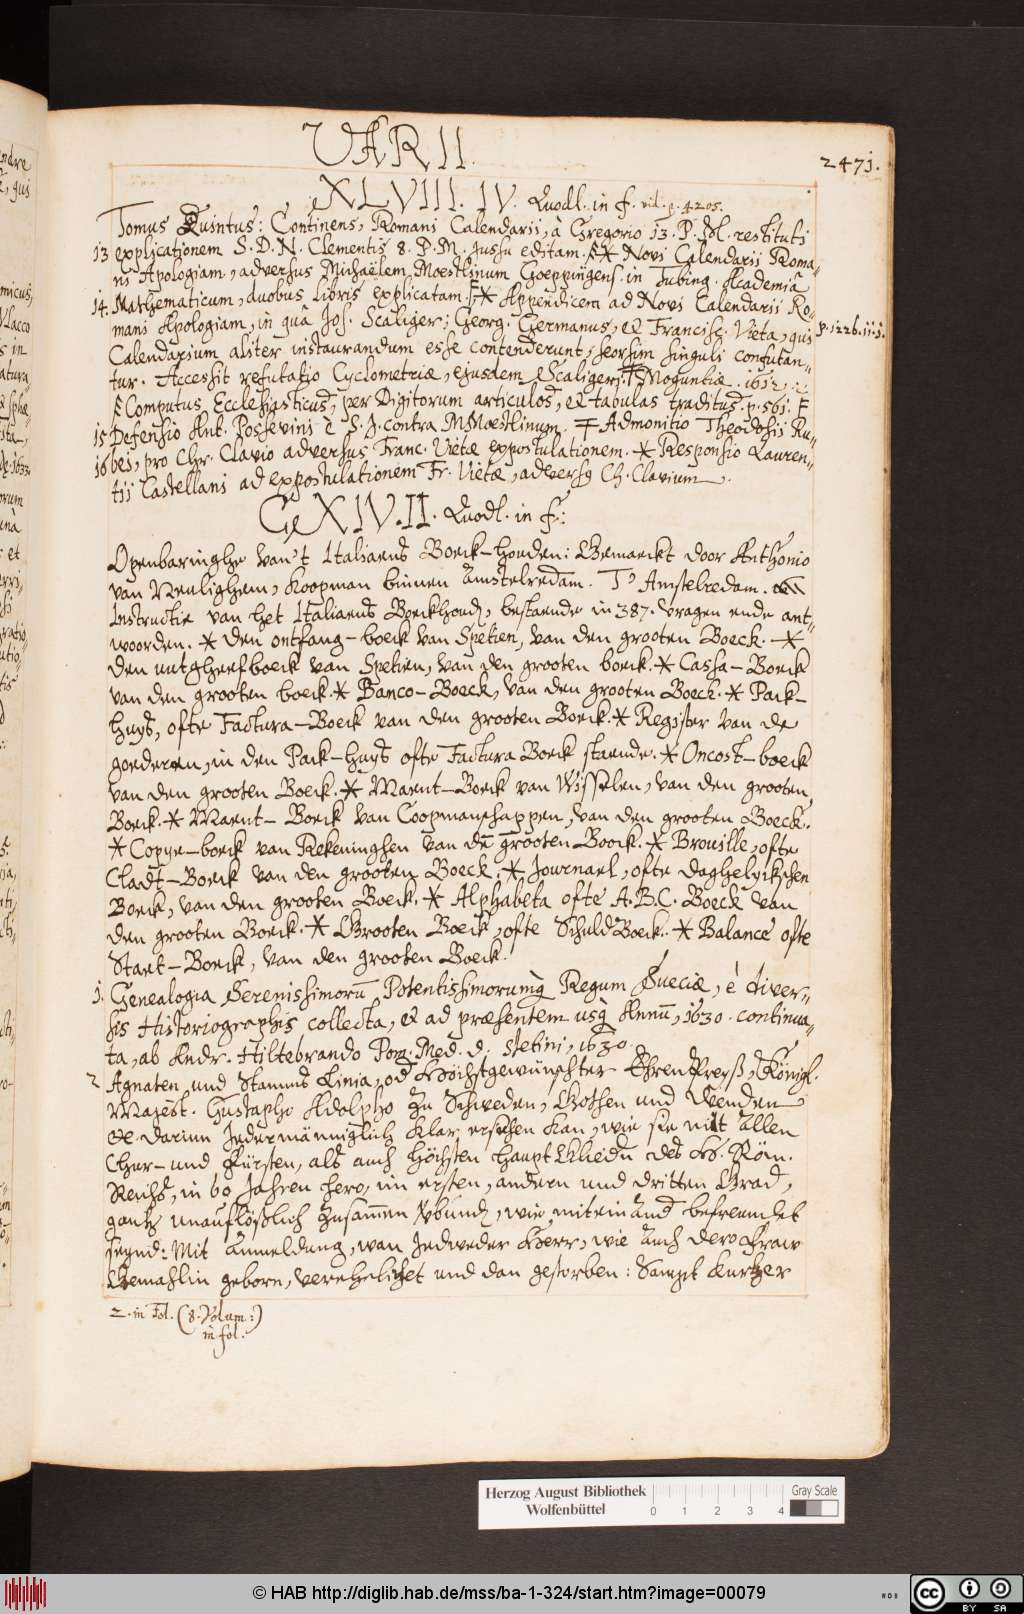 VARII.
2471.
XLVIII. IV. Quodl. in f. vid. p. 4205.
Tomus Quintus: Continens, Romani Calendarii, à Gregorio 13. P. M. restituti
13 explicationem S. D. N. Clementis 8. P. M. jussu editam. F* Novi Calendarii Roma-
ni Apologiam, adversus Michaëlem Moestlinum Goeppingens. in Tubing. Academiâ
14. Mathematicum, duobus libris explicatam. F* Appendicem ad Novi Calendarii Ro-
mani Apologiam, in quâ Jos. Scaliger; Georg. Germanus, et Francisc. Vieta, qui p. 1226. ii. j.
Calendarium aliter instaurandum esse contenderunt, seorsim singuli confutan-
tur. Accessit refutatio Cyclometriæ, ejusdem Scaligeri. * Moguntiæ. 1612.
F Computus Ecclesiasticus, per Digitorum articulos, et tabulas traditus. p. 561. F
15 Defensio Ant. Possevini è S. J. contra M Moestlinum. F Admonitio Theodosii Ru-
16 bei, pro Chr. Clavio adversus Franc. Vietæ expostulationem. * Responsio Lauren-
tij Castellani ad expostulationem Fr. Vietæ, adversq Ch. Clavium.
CXIV. II. Quodl. in f:
Openbaringhe van't Italiaens Boeck-houden: Gemaeckt door Anthonio
van Neulighem, Koopman binnen Amstelredam. T' Amstelredam.
Instructie van het Italiaens Boeckhoud, bestaende in 387. vragen ende ant-
woorden. * den ontfang-boeck van Spetien, van den grooten Boeck. *
den uutgheefboeck van Spetien, van den grooten boeck. * Cassa-Boeck
van den grooten boeck. * Banco-Boeck, van den grooten Boeck. * Pack-
huys, ofte Factura-Boeck van den grooten Boeck. * Register van de
goederen, in den Pack-huys ofte Factura Boeck staende. * Oncost-boeck
van den grooten Boeck. * Maent-Boeck van Wisselen, van den grooten
Boeck. * Maent-Boeck van Coopmanschappen, van den grooten Boeck.
* Copye-boeck van Rekeninghen van de grooten Boock. * Brouille, ofte
Cladt-Boeck van den grooten Boeck. * Journael, ofte daghelyckschen
Boeck, van den grooten Boeck. * Alphabeta ofte A.B.C. Boeck van
den grooten Boeck. * Grooten Boeck, ofte Schuld Boeck. * Balance ofte
Staet-Boeck, van den grooten Boeck.
1. Genealogia Serenissimorū Potentissimorumq Regum Sueciæ, è diver-
sis Historiographis collecta, et ad præsentem usq Annū, 1630. continua-
ta, ab Andr. Hiltebrando Pom. Med. d. Stetini, 1630.
2 Agnaten und Stamms Linia, od Höchstgewünschter EhrenPreyß, Königl.
Majest. Gustapho Adolpho zu Schweden, Gothen und Wenden
&c. darinn Jedermänniglich klar ersehen kan, wie sie mit allen
Chur- und Fürsten, als auch höchsten Haupt Gliedn des H. Röm.
Reichs, in 60 Jahren hero, im ersten, andern und dritten Grad,
gantz unauflößlich zusam̄en v̄bund, wie miteinand befreundet
seynd: Mit anmeldung, wan Jedweder Herr, wie auch dero Fraw
Gemahlin geborn, verehelichet und dan gestorben: Sampt kurtzer
2. in Fol. (8. Volum:)
in fol.
Herzog August Bibliothek
Wolfenbüttel
0 1 2 3 4
Gray Scale
© HAB http://diglib.hab.de/mss/ba-1-324/start.htm?image=00079
cc BY SA